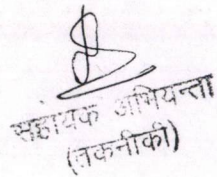 सहायक अभियन्ता
(तकनीकी)